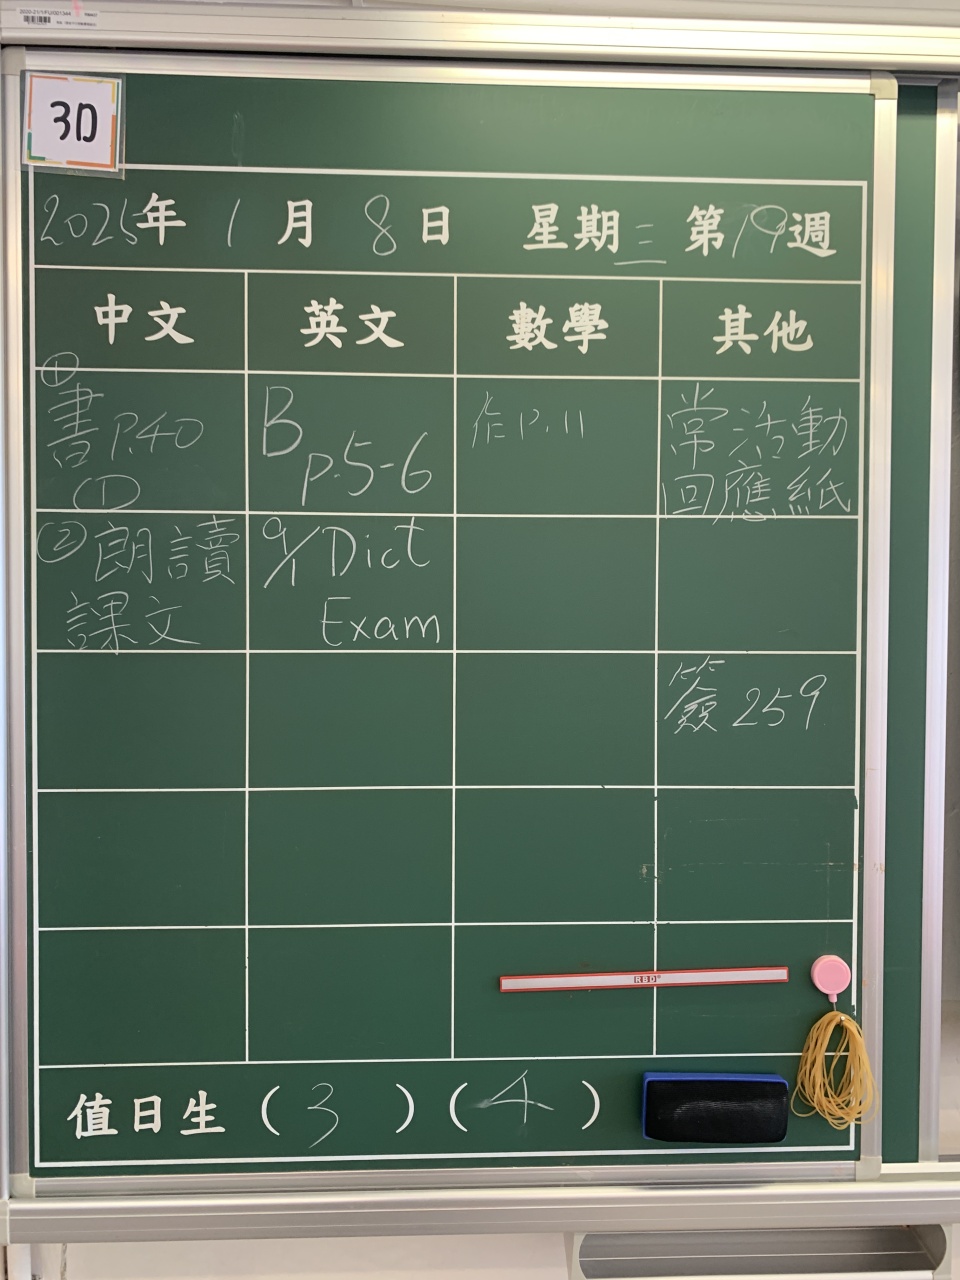 3D
2025年 1月 8日 星期三 第19週
中文 英文 數學 其他
① 書 P.40
①
B
p.5-6
作 P.11
常活動
回應紙
② 朗讀
課文
9/1 Dict
Exam
簽 259
RBD
值日生 (3) (4)